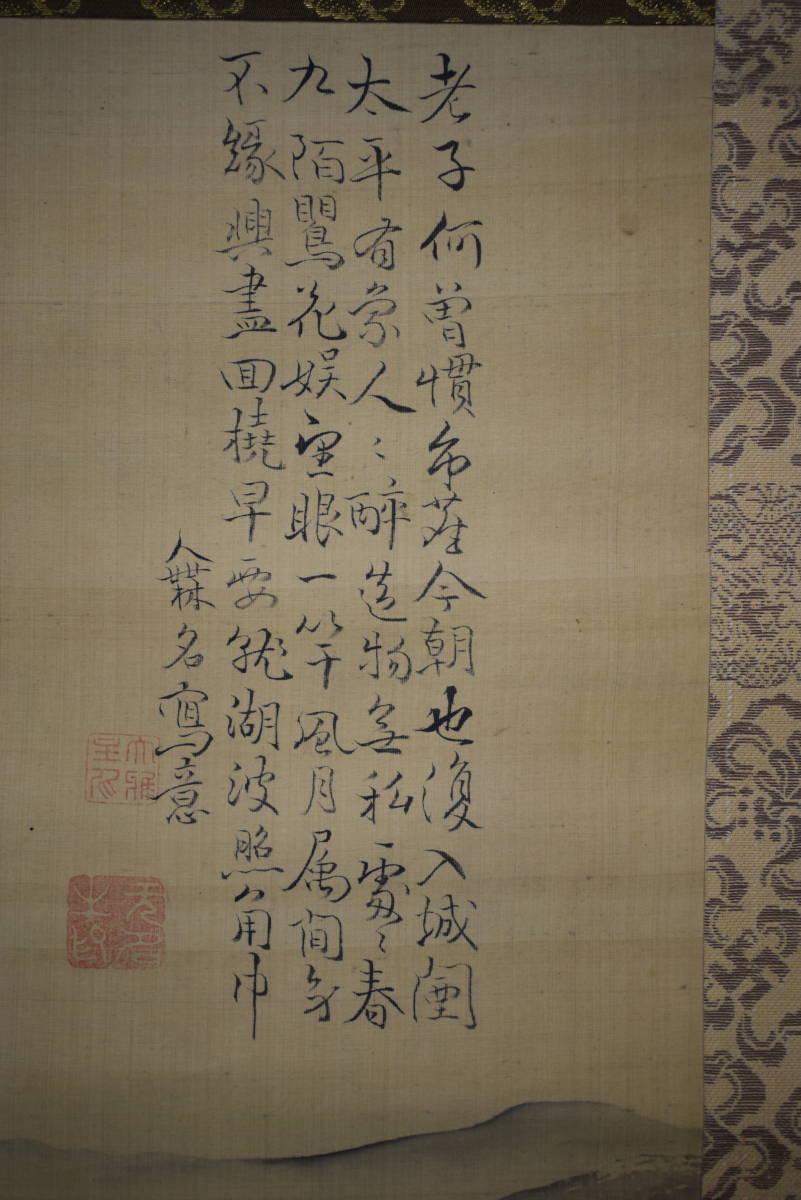 老子何曾慣市塵今朝也復入城闉
太平有象人〻醉造物無私處〻春
九陌鸎花娯望眼一竿風月属間身
不縁興盡回橈早要就湖波照角巾
無名寫意